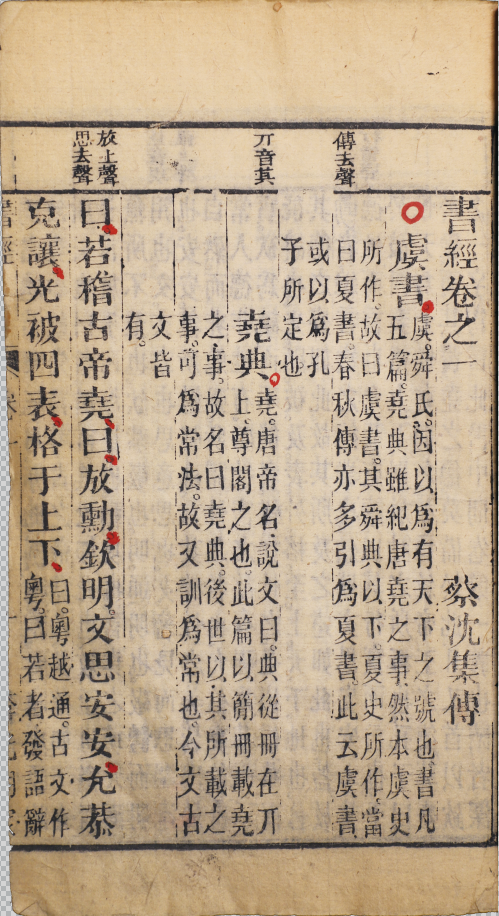 傳去聲
丌音其
放上聲
思去聲
書經卷之一 蔡沈集傳
虞書 虞舜氏。因以爲有天下之號也。書凡
五篇。堯典雖紀唐堯之事。然本虞史
所作。故曰虞書。其舜典以下。夏史所作。當
曰夏書。春秋傳亦多引爲夏書。此云虞書。
或以爲孔
子所定也。
堯典 堯。唐帝名。說文曰。典從冊在丌
上。尊閣之也。此篇以簡冊載堯
之事。故名曰堯典。後世以其所載之
事。可爲常法。故又訓爲常也。今文古
文皆
有。
曰若稽古帝堯曰放勳欽明文思安安允恭
克讓光被四表格于上下 曰。粵越通。古文作
粵。曰若者。發語辭